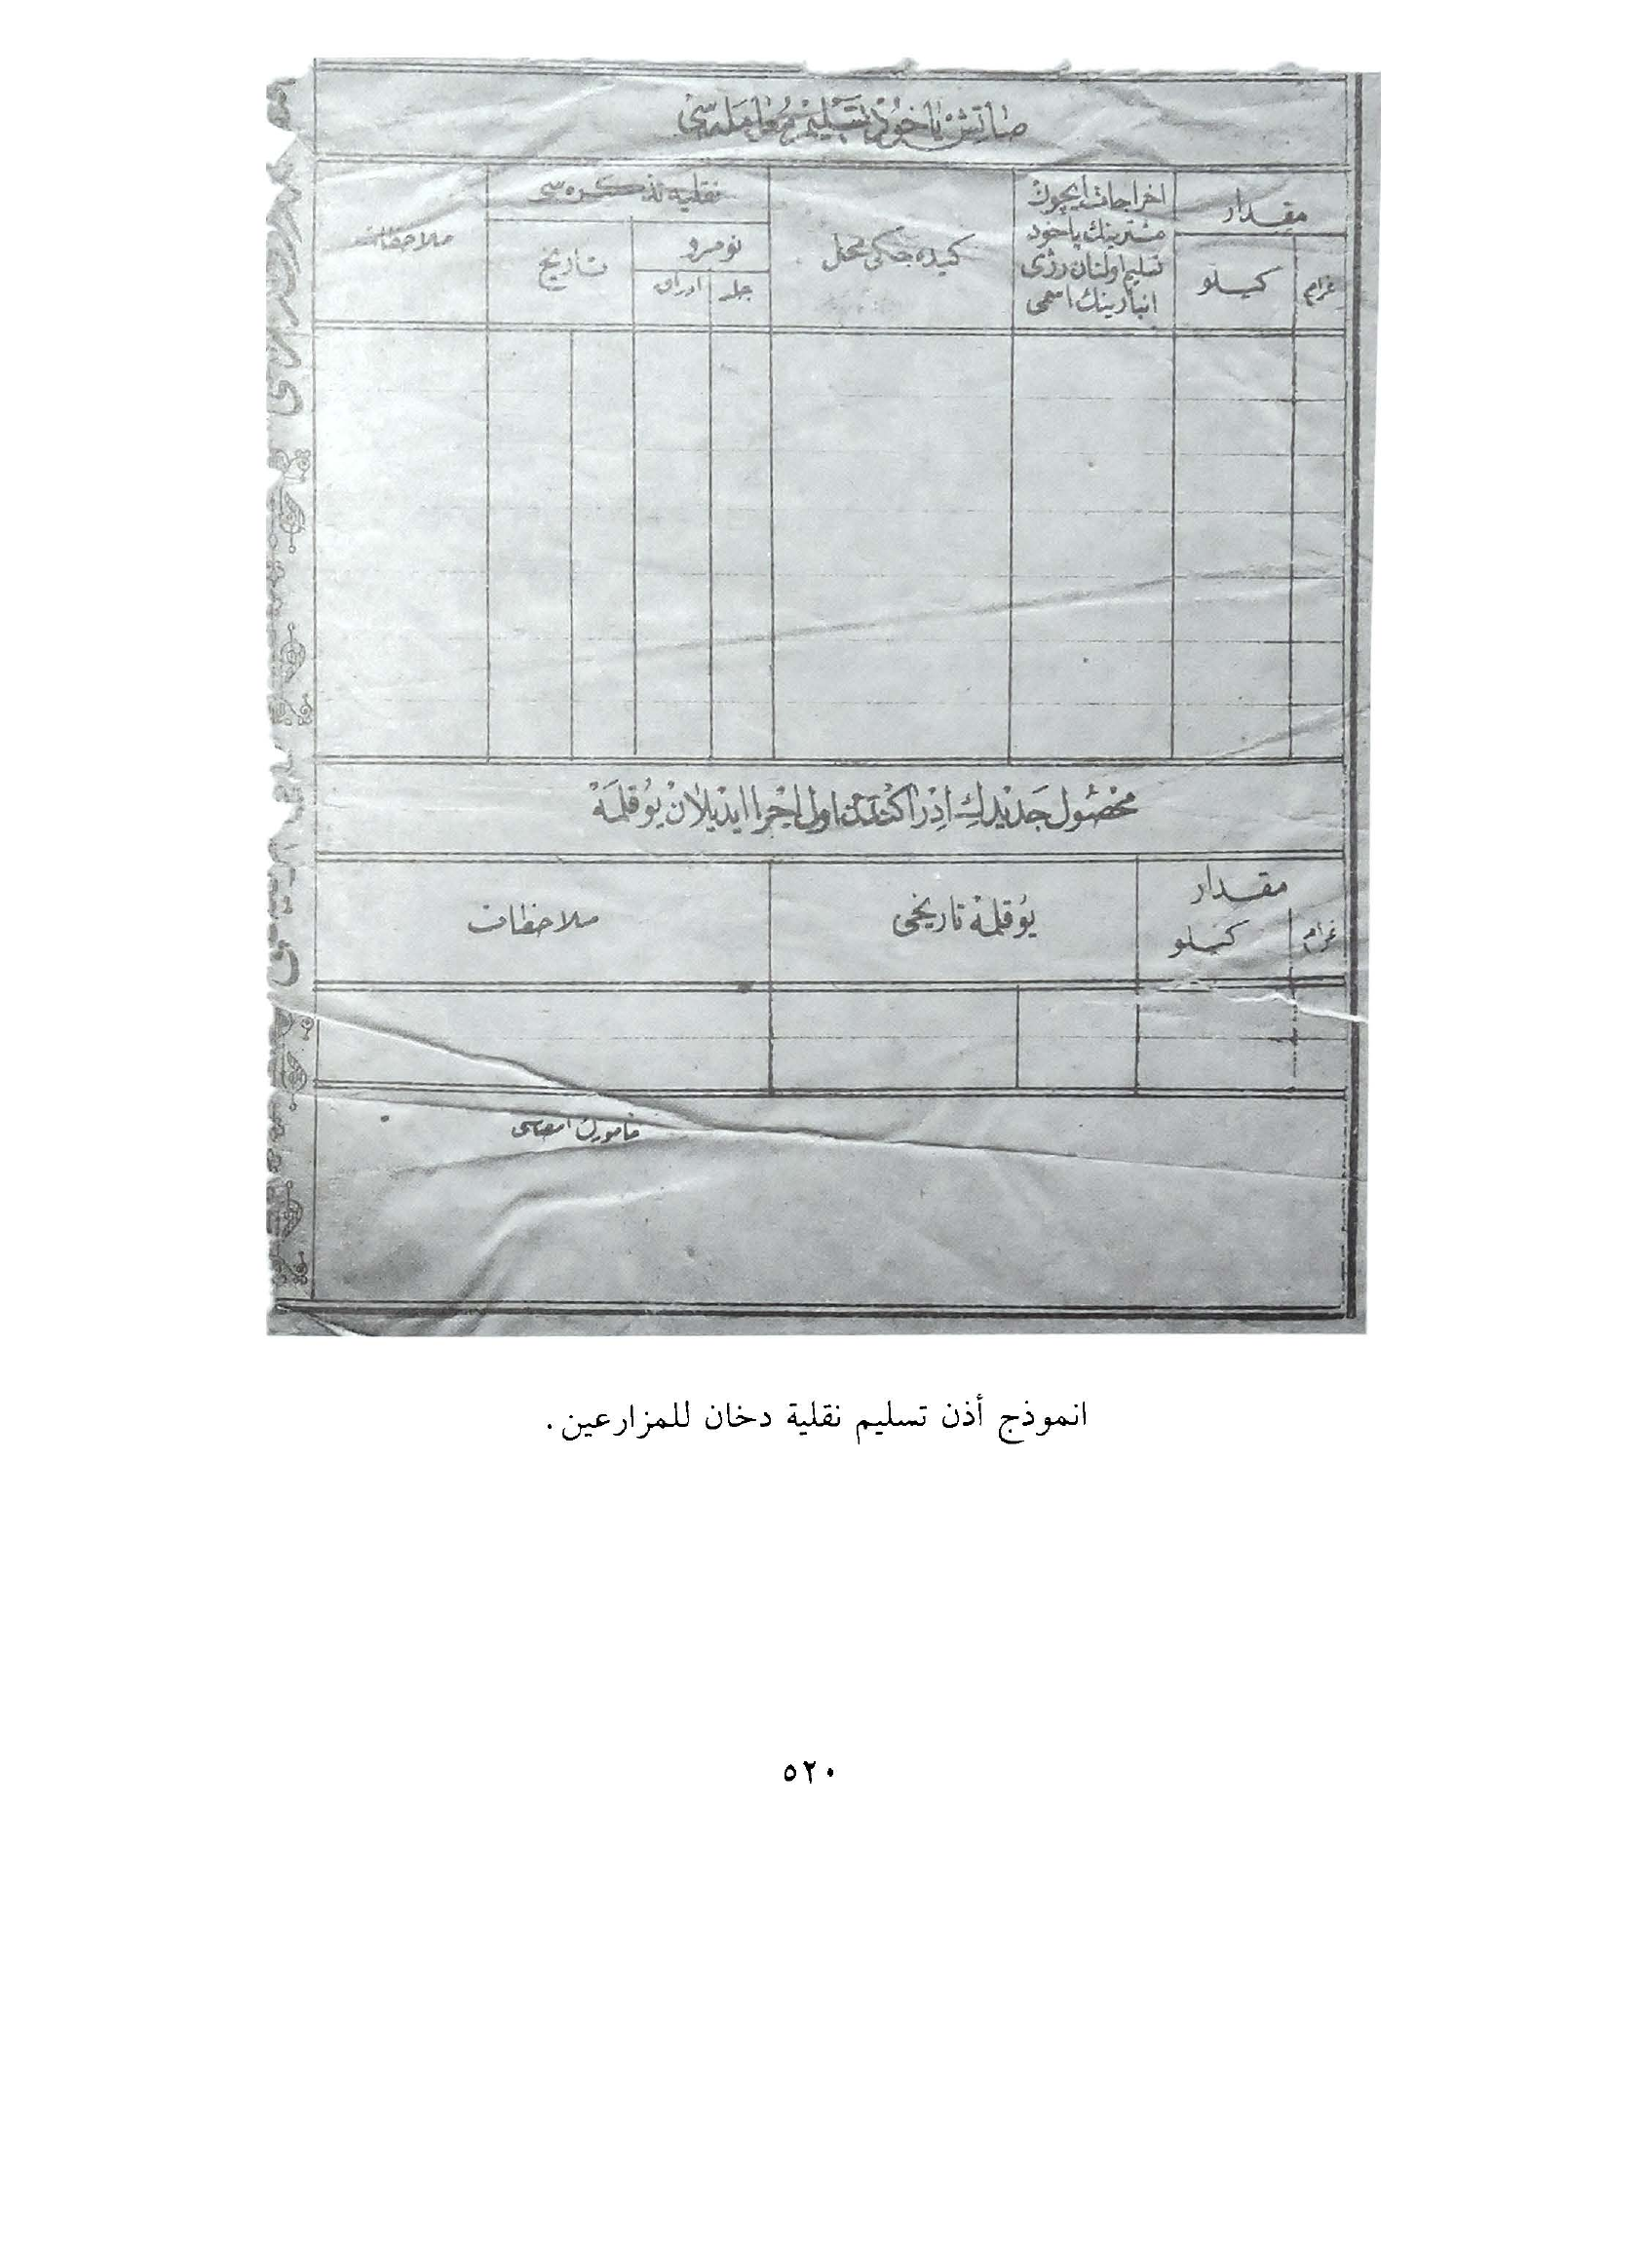 صاتش ياخود تسليم معاملهسى
مقدار
غرام
كيلو
اخراجات ايچون
مشترينك ياخود
تسليم اولنان رژى
انبارينك اسمى
كيده جكى محل
نقليه تذكره سى
نومرو
جلد
اوراق
تاريخ
ملاحظات
محصول جديدك ادراكندن اول اجرا ايديلان يوقلمه
مقدار
غرام
كيلو
يوقلمه تاريخى
ملاحظات
مأمورك امضاسى
انموذج أذن تسليم نقلية دخان للمزارعين .
٥٢٠